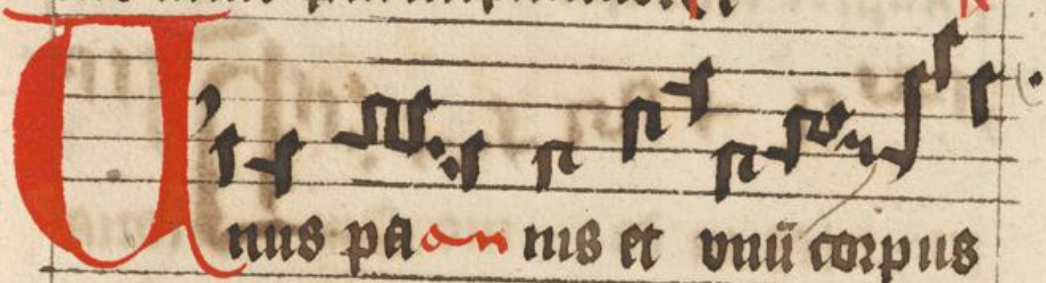 Unus pa an nis et vnū corpus